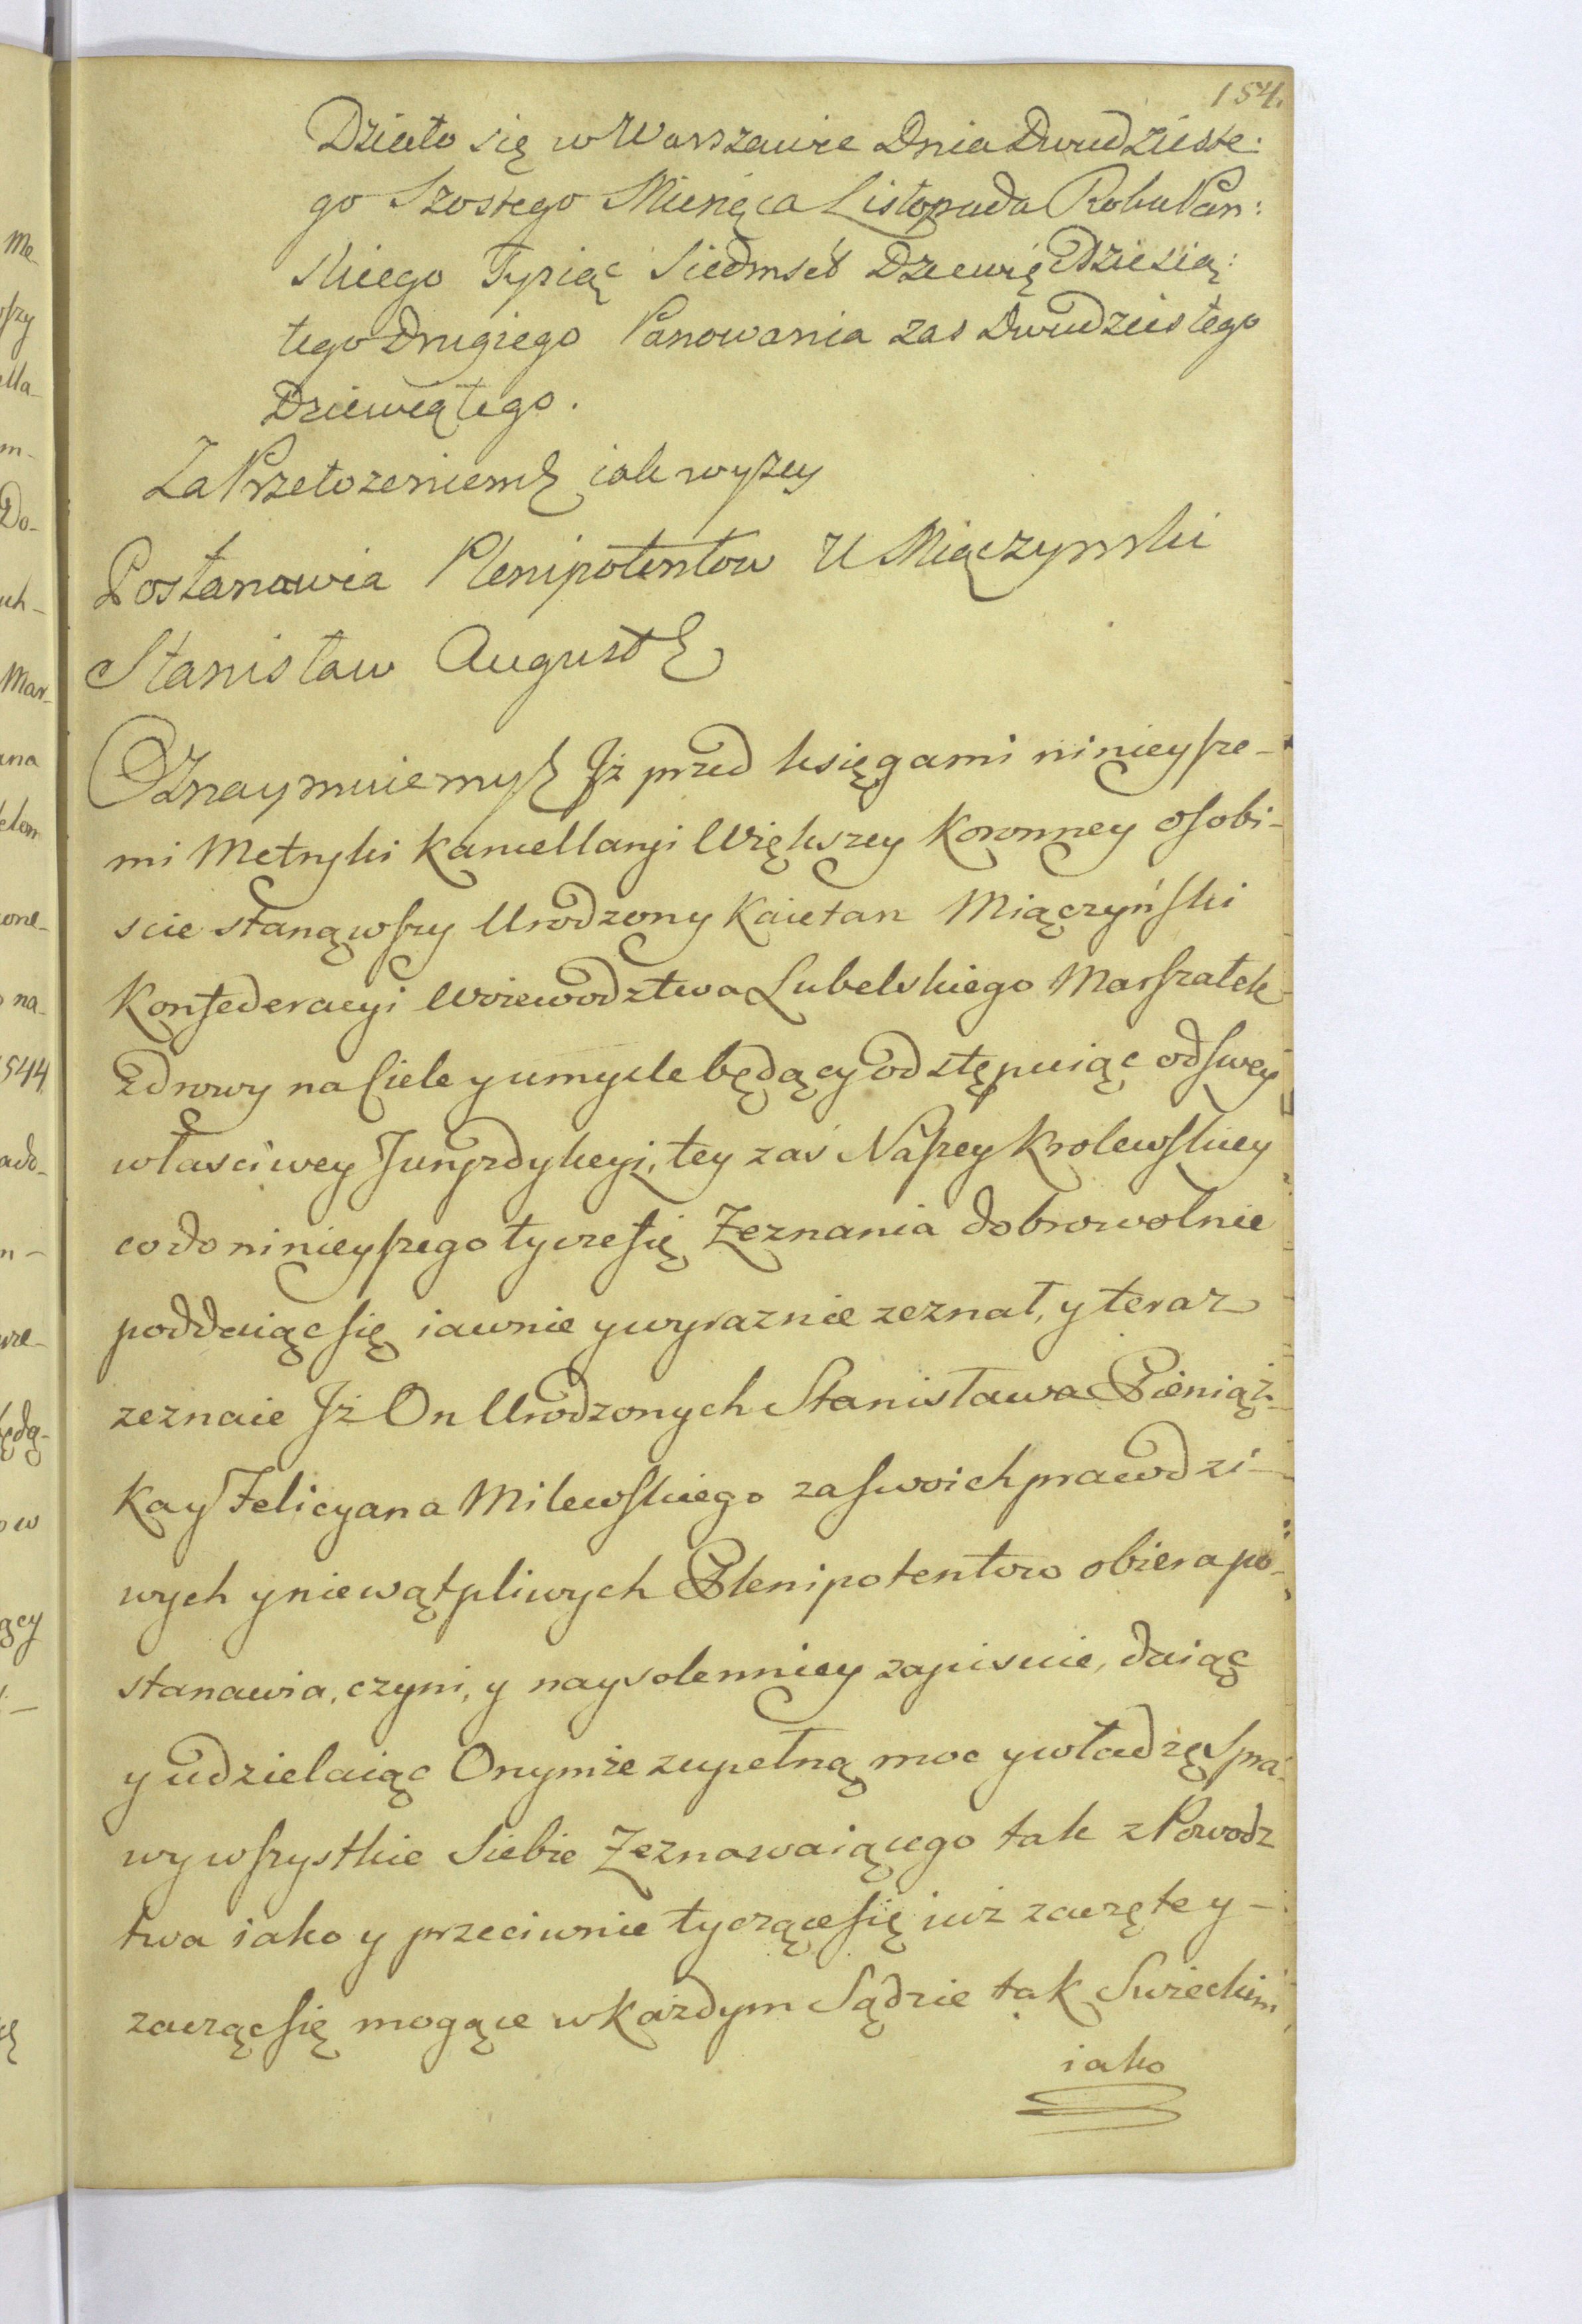 154.
Działo się w Warszawie Dnia Dwudzieste:
go Szostego Miesięca Listopada Roku Pan:
skiego Tysiąc Siedmset Dziewiędziesią:
tego Drugiego Panowania zas Dwudziestego
Dziewiątego.
Za Przełożeniem jak wyszey
Postanowia Plenipotentow U Miączynski
Stanisław August
Oznaymuiemy Jż przed księgami ninieysze-
mi Metryki Kancellaryi Większey Koronney osobi-
scie stanąwszy Urodzony Kaietan Miączyński
Konfederacyi Woiewodztwa Lubelskiego Marszałek
Zdrowy na Ciele y umysle będący odstępuiąc od swey
właściwey Juryzdykcyi, tey zaś Naszey Krolewskiey
co do ninieyszego tycze się Zeznania dobrowolnie
poddaiąc się iawnie y wyraznie zeznał, y teraz
zeznaie Jż On Urodzonych Stanisława Pieniąż-
ka y Felicyana Milewskiego za swoich prawdzi-
wych y niewątpliwych Plenipotentow obiera po-
stanawia, czyni, y naysolenniey zapisuie, daiąc
y udzielaiąc Onymże zupełną moc y władzę Spra-
wy wszystkie Siebie Zeznawaiącego tak z Powodz
twa iako y przeciwnie tyczące się iuż zaczęte y-
zacząc się mogące w każdym Sądzie tak Swieckim
iako
Me-
szy
ella-
m-
Do-
uch-
Mar-
ana
elom
one-
o na-
544.
ado-
n-
wre-
będą-
ow
ący